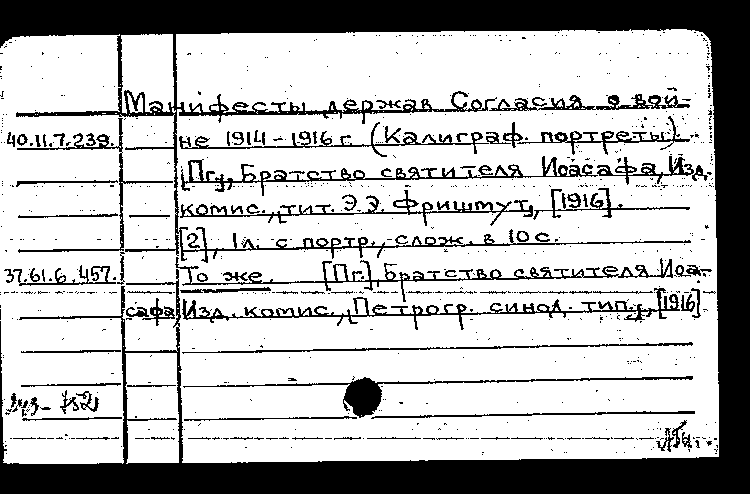 Манифесты держав Согласия о вой-
40.11.7.239. не 1914-1916 г. (Калиграф. портреты).
[Пг.], Братство святителя Иоасафа, Изд.
комис., [тит. Э.Э. Фришмут], [1916].
[2], 1л. с портр., слож. в 10 с.
37.61.6.457. То же. [Пг.], Братство святителя Иоа-
сафа, Изд. комис., [Петрогр. синод. тип.], [1916]